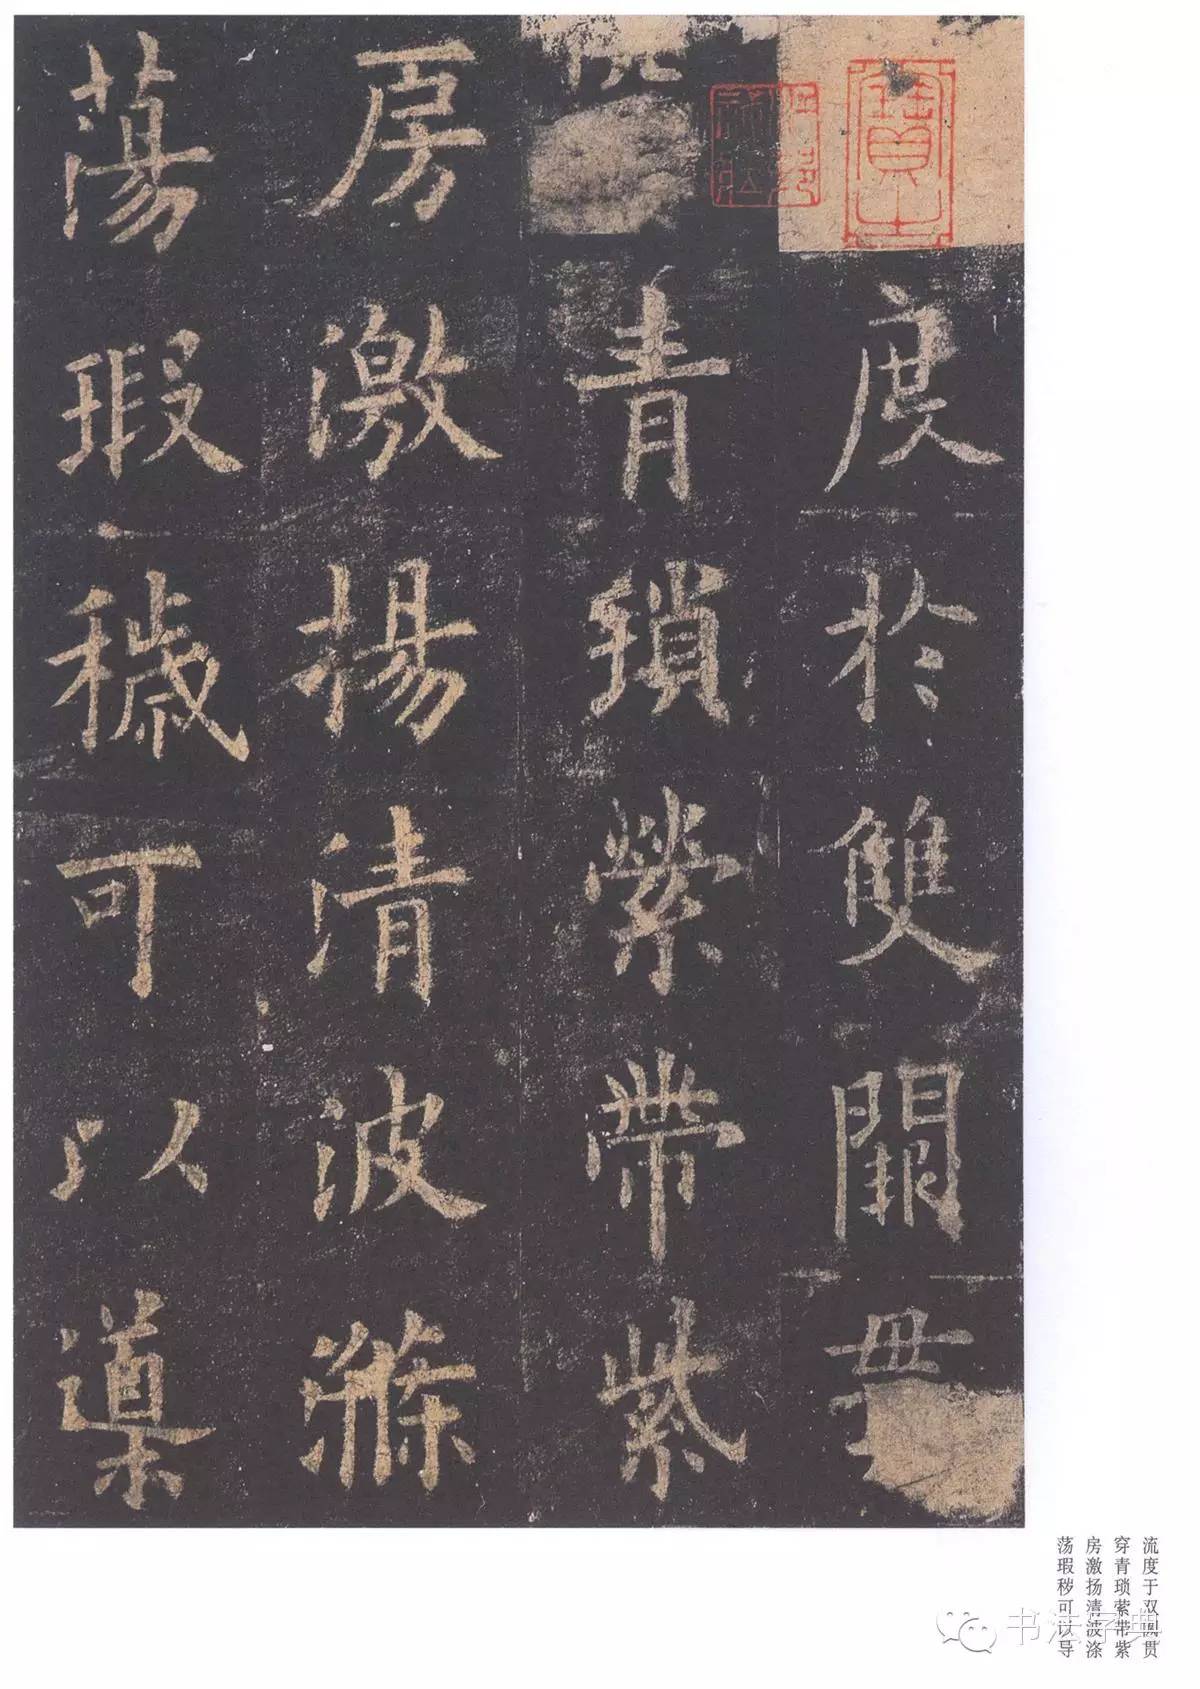 度於雙闕貫
青瑣縈帶紫
房激揚清波滌
蕩瑕穢可以導
流度于双阙贯
穿青琐萦带紫
房激扬清波涤
荡瑕秽可以导
书法字典